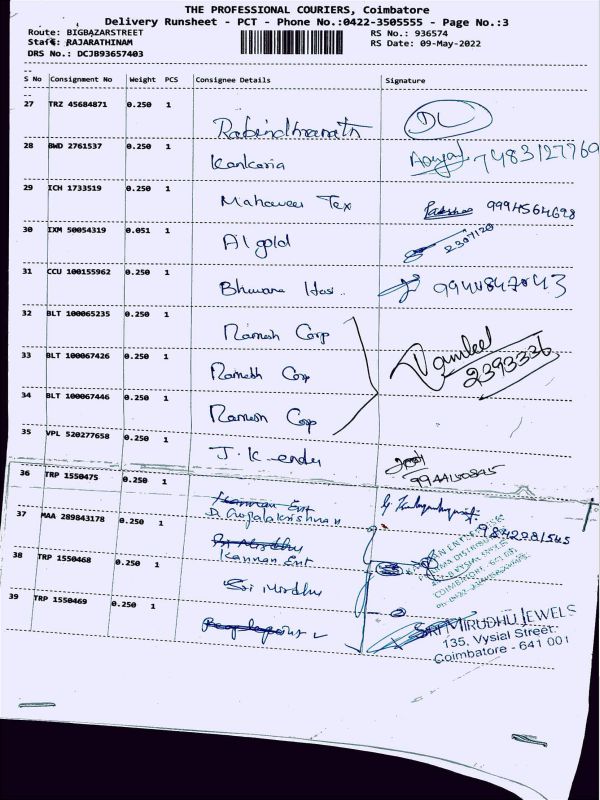 THE PROFESSIONAL COURIERS, Coimbatore
Delivery Runsheet - PCT - Phone No.:0422-3505555 - Page No.:3
Route: BIGBAZARSTREET RS No.: 936574
Staff: RAJARATHINAM RS Date: 09-May-2022
DRS No.: DCJB93657403
S No Consignment No Weight PCS Consignee Details Signature
27 TRZ 45684871 0.250 1
Rabindhranath
28 BWD 2761537 0.250 1
Kankaria 7483127769
29 ICH 1733519 0.250 1
Mahaveer Tex 9994564698
30 IXM 50054319 0.051 1
Al gold
31 CCU 100155962 0.250 1
Bhuvana 9944847043
32 BLT 100065235 0.250 1
Ramesh Corp
33 BLT 100067426 0.250 1
Ramesh Corp 2393336
34 BLT 100067446 0.250 1
Ramesh Corp
35 VPL 520277658 0.250 1
J.K
36 TRP 1550475 0.250 1
Kannan Ent
37 MAA 289843178 0.250 1
D. Gopalakrishnan 9842081545
Kannan Ent
38 TRP 1550468 0.250 1
Sri Mirdhu
39 TRP 1550469 0.250 1
SRI MIRUDHU JEWELS
135, Vysial Street.
Coimbatore - 641 001